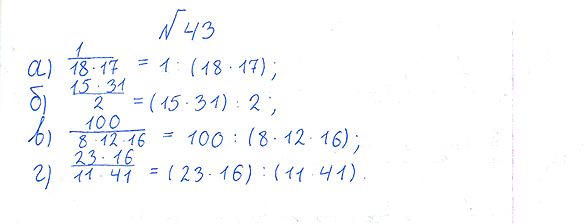 № 43
а) 1/(18 · 17) = 1 : (18 · 17);
б) (15 · 31)/2 = (15 · 31) : 2;
в) 100/(8 · 12 · 16) = 100 : (8 · 12 · 16);
г) (23 · 16)/(11 · 41) = (23 · 16) : (11 · 41).